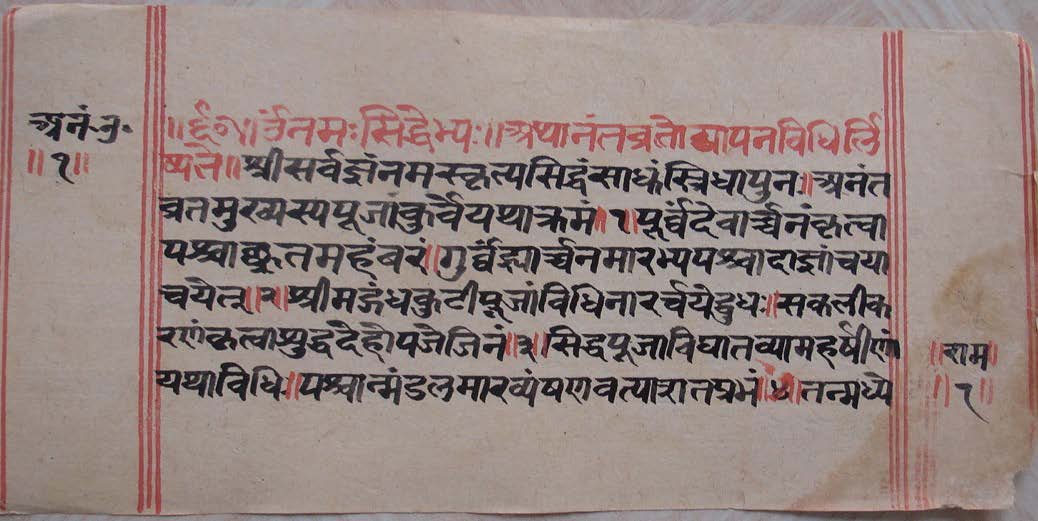 अनं॰उ॰
॥१॥
॥र्द०॥ॐनमःसिद्धेभ्यः॥अथानंतव्रतोद्यापनविधिर्लि
ष्यते॥श्रीसर्वज्ञंनमस्कृत्यसिद्धंसाधूंस्त्रिधापुनः॥अनंत
व्रतमुख्यस्यपूजांकुर्वेयथाक्रमं॥१॥पूर्व्वंदेवार्च्चनंकृत्वा
पश्चाच्छ्रुतमहंवरं॥गुर्व्वंह्यार्च्चनमारभ्यपश्चादाज्ञांचया
चयेत्॥२॥श्रीमद्गंधकुटीपूजांविधिनारर्चयेद्बुधः॥सकलीक
रणंकृत्वाशुद्धदेहोपजेजिनं॥३॥सिद्धपूजाविघातव्यामहर्षीणां
यथाविधिः॥पश्चान्मंडलमारव्यंषणवत्यारातप्रमं॥४॥तन्मध्ये
॥राम॥
॥१॥